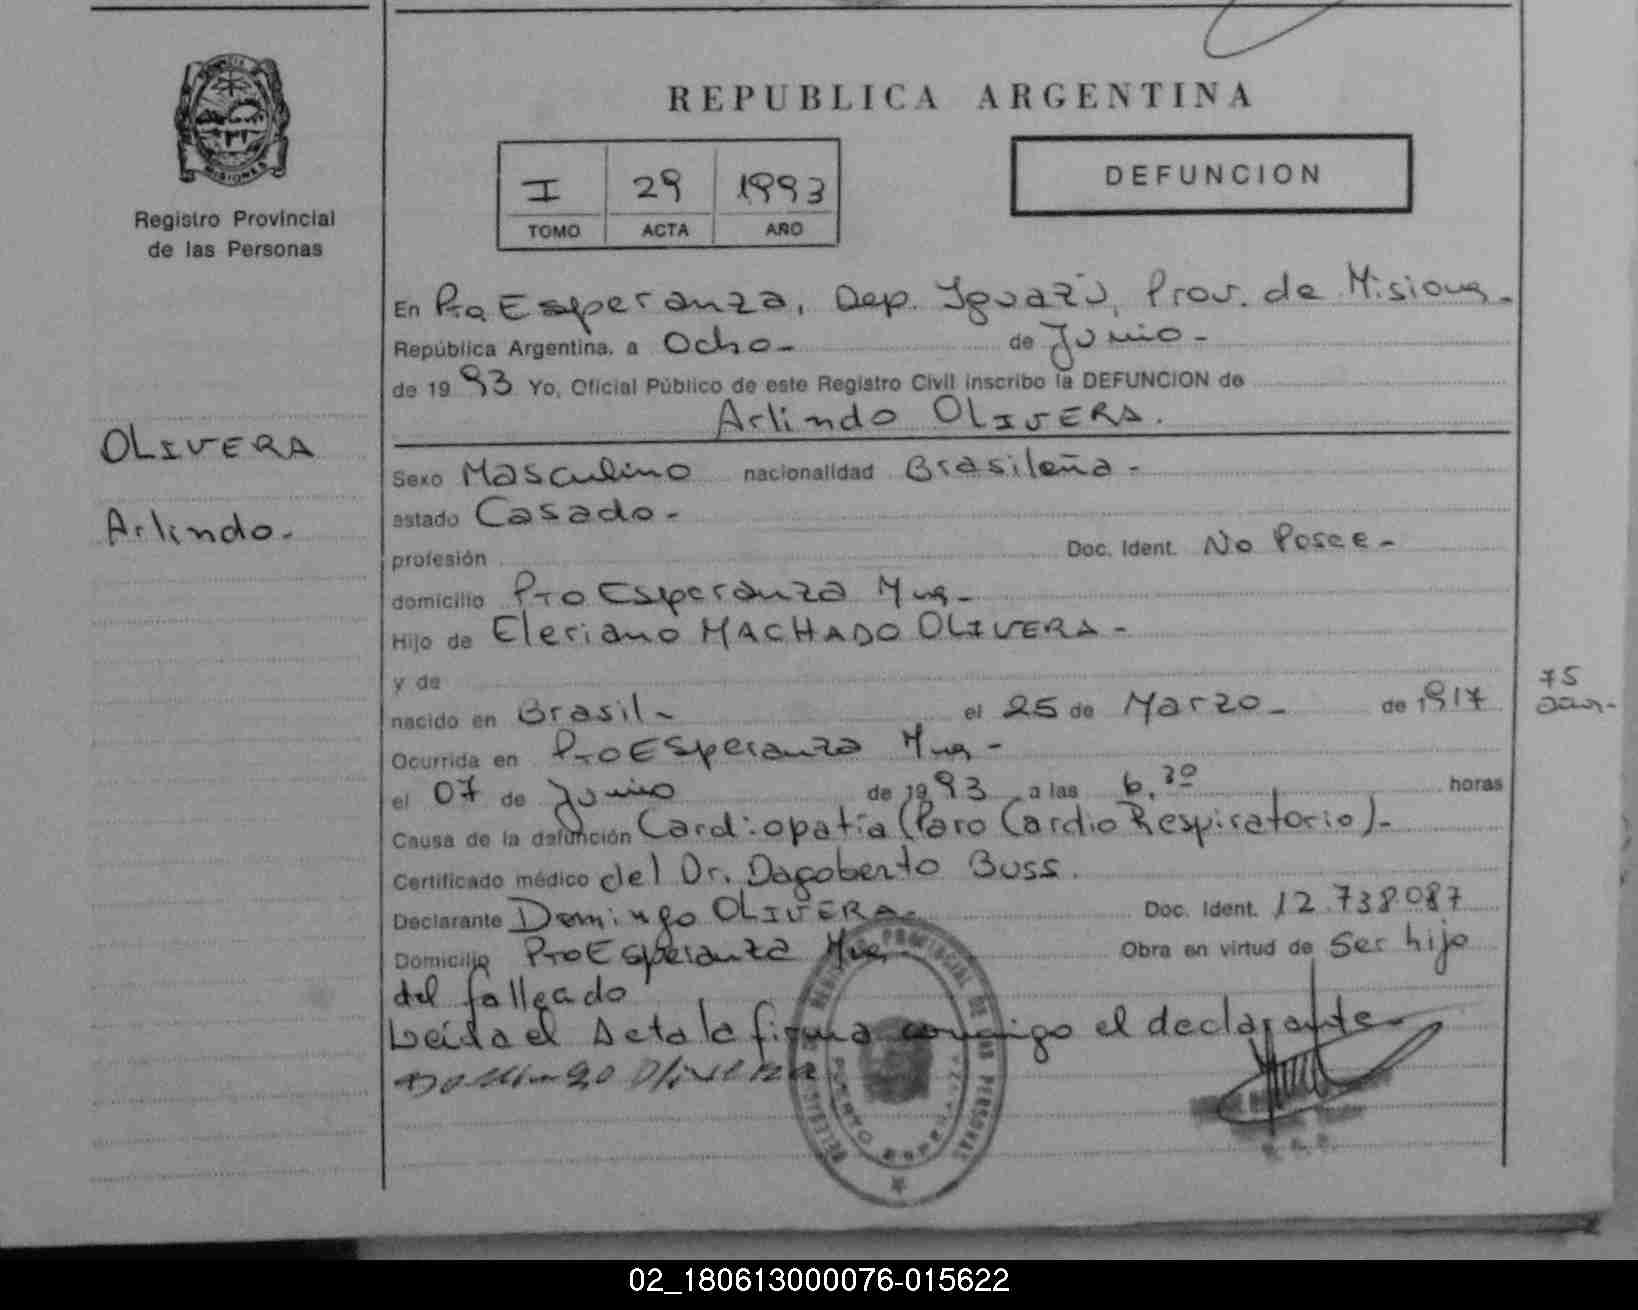 REPUBLICA ARGENTINA
PROVINCIA DE
MISIONES
Registro Provincial
de las Personas
I 29 1993
TOMO ACTA AÑO
DEFUNCION
En Pto Esperanza, Dep. Iguazú, Prov. de Misiones.
República Argentina, a Ocho - de Junio -
de 1993 Yo, Oficial Público de este Registro Civil inscribo la DEFUNCION de
Arlindo OLIVERA.
OLIVERA
Arlindo -
Sexo Masculino nacionalidad Brasileña -
estado Casado -
profesión Doc. Ident. No Posee -
domicilio Pto Esperanza Mnes -
Hijo de Eleriano MACHADO OLIVERA -
y de
nacido en Brasil - el 25 de Marzo - de 1917
75
años -
Ocurrida en Pto Esperanza Mnes -
el 07 de Junio de 1993 a las 6,30 horas
Causa de la defunción Cardiopatía (Paro Cardio Respiratorio) -
Certificado médico del Dr. Dagoberto Buss.
Declarante Domingo OLIVERA - Doc. Ident. 12.738.087
Domicilio Pto Esperanza Mnes - Obra en virtud de Ser hijo
del fallecido
Leída el Acta la firma conmigo el declarante -
Domingo Olivera
REGISTRO PROVINCIAL DE LAS PERSONAS
PUERTO ESPERANZA
02_180613000076-015622